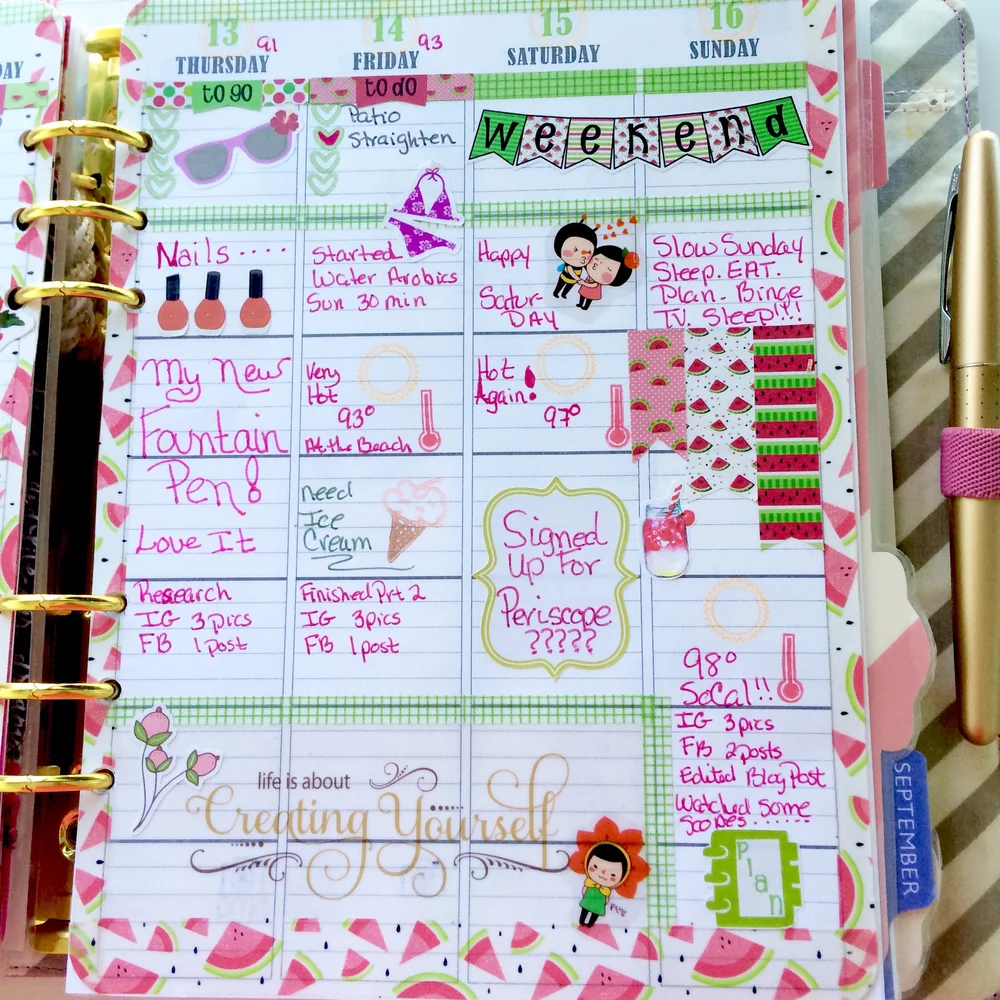 DAY
13
91
THURSDAY
to go
Nails ....
My New
Fountain
Pen!
Love It
Research
IG 3pics
FB 1post
14
93
FRIDAY
to do
Patio
Straighten
Started
Water Arobics
Sun 30 min
Very
Hot
93°
At the Beach
need
Ice
Cream
Finished Prt 2
IG 3pics
FB 1post
15
SATURDAY
weekend
Happy
Satur-
DAY
Hot
Again!
97°
Signed
Up For
Periscope
?????
16
SUNDAY
Slow Sunday
Sleep. EAT.
Plan. Binge
TV. Sleep!!!
98°
SoCal!!
IG 3pics
FB 2posts
Edited Blog Post
Watched Some
Scopes.....
Plan
life is about
Creating Yourself
SEPTEMBER